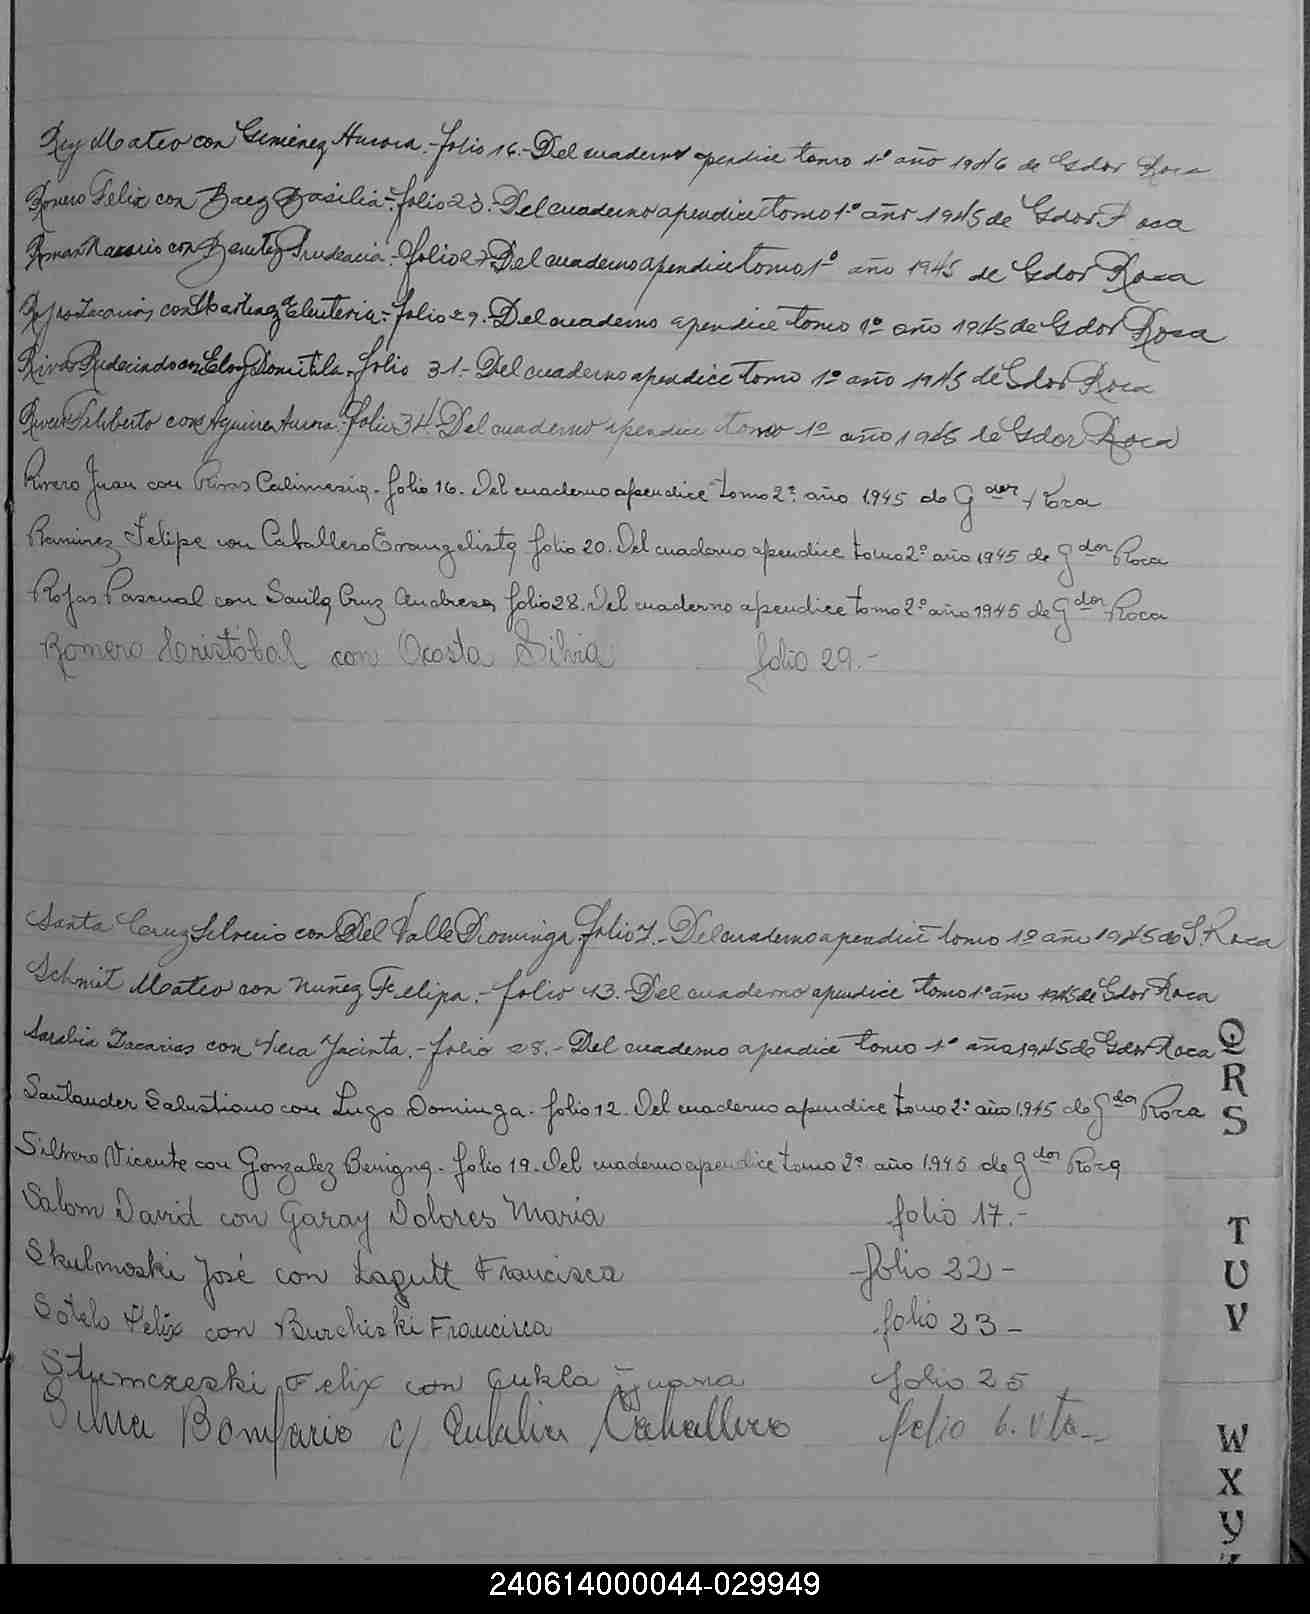 Rey Mateo con Gimenez Aurora.-folio 16.-Del cuaderno apendice tomo 1º año 1946 de Gdor Roca
Romero Felix con Baez Basilia.-folio 23.-Del cuaderno apendice tomo 1º año 1945 de Gdor Roca
Roman con Benitez Prudencia.-folio 27-Del cuaderno apendice tomo 1º año 1945 de Gdor Roca
Rojas Zacarias con Martinez Eleuteria.-folio 29.-Del cuaderno apendice tomo 1º año 1945 de Gdor Roca
Rivas Rudecindo con Eloy Domitila.-folio 31.-Del cuaderno apendice tomo 1º año 1945 de Gdor Roca
Filiberto con Aguirre Aurora.-folio 34.-Del cuaderno apendice tomo 1º año 1945 de Gdor Roca
Rivero Juan con Rivas Calimesia.-folio 16.-Del cuaderno apendice tomo 2º año 1945 de Gdor Roca
Ramirez Felipe con Caballero Evangelista folio 20. Del cuaderno apendice tomo 2º año 1945 de Gdor Roca
Rojas Pascual con Santa Cruz Andresa folio 28. Del cuaderno apendice tomo 2º año 1945 de Gdor Roca
Romero Cristobal con Acosta Silvia folio 29.-
Santa Cruz con Del Valle Dominga.folio 7.-Del cuaderno apendice tomo 1º año 1945 de G. Roca
Schmit Mateo con Nuñez Felipa.-folio 13.-Del cuaderno apendice tomo 1º año 1945 de Gdor Roca
Sarabia Zacarias con Vera Jacinta.-folio 28.-Del cuaderno apendice tomo 1º año 1945 de Gdor Roca
Santander Salustiano con Lugo Dominga.-folio 12. Del cuaderno apendice tomo 2º año 1945 de Gdor Roca
Silvero Vicente con Gonzalez Benigna.-folio 19.-Del cuaderno apendice tomo 2º año 1945 de Gdor Roca
Salom David con Garay Dolores Maria folio 17.-
Skulmoski José con Lagutt Francisca folio 22-
Sotelo Felix con Burchiski Francisca folio 23-
Stumczeski Felix con Cukla Juana folio 25
Silva Bonifacio c/ Eulalia Caballero folio 6. vta-
Q
R
S
T
U
V
W
X
Y
Z
240614000044-029949